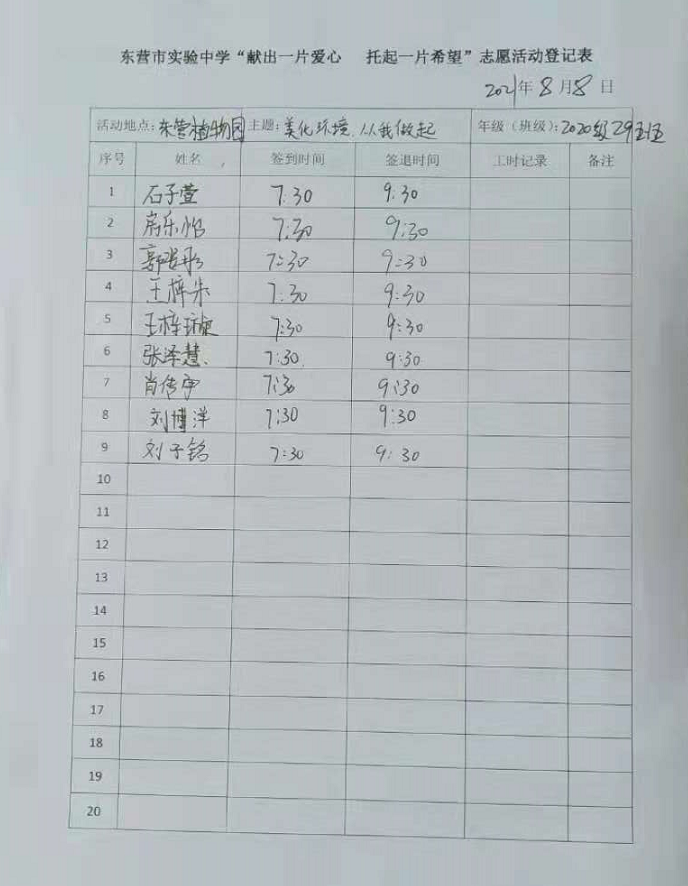 东营市实验中学“献出一片爱心 托起一片希望”志愿活动登记表
2021年8月8日
活动地点：东营植物园 主题：美化环境，从我做起 年级（班级）：2020级29班
序号 姓名 签到时间 签退时间 工时记录 备注
1 石子萱 7:30 9:30
2 房乐怡 7:30 9:30
3 7:30 9:30
4 王梓朱 7:30 9:30
5 王梓璇 7:30 9:30
6 张泽慧 7:30 9:30
7 肖传宇 7:30 9:30
8 刘博洋 7:30 9:30
9 刘子铭 7:30 9:30
10
11
12
13
14
15
16
17
18
19
20